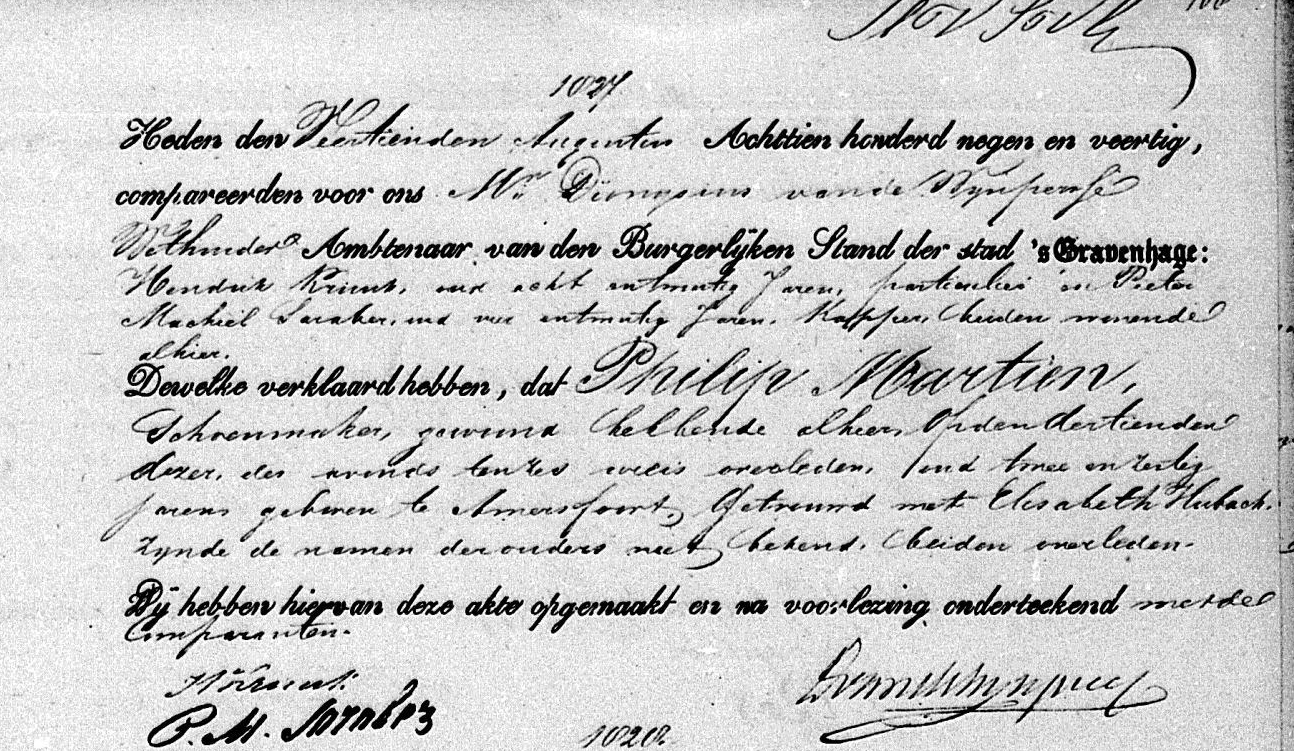 1027
Heden den Veertienden Augustus Achttien honderd negen en veertig,
compareerden voor ons Mr. Dionysius van de Wynpersse
Wethouder Ambtenaar van den Burgerlijken Stand der stad 's Gravenhage:
Hendrik oud acht entwintig Jaren, particulier en Pieter
Machiel oud vier entwintig Jaren, Kapper, beiden wonende
alhier.
Dewelke verklaard hebben, dat Philip Martien,
Schoenmaker, gewoond hebbende alhier, Op den dertienden
dezer, des avonds ten zes ure is overleden, oud twee en zestig
jaren geboren te Amersfoort, Getrouwd met Elisabeth Hubach.
zynde de namen der ouders niet bekend, beiden overleden.
Wij hebben hiervan deze akte opgemaakt en na voorlezing onderteekend met de
Comparanten.
P. M.
1028.